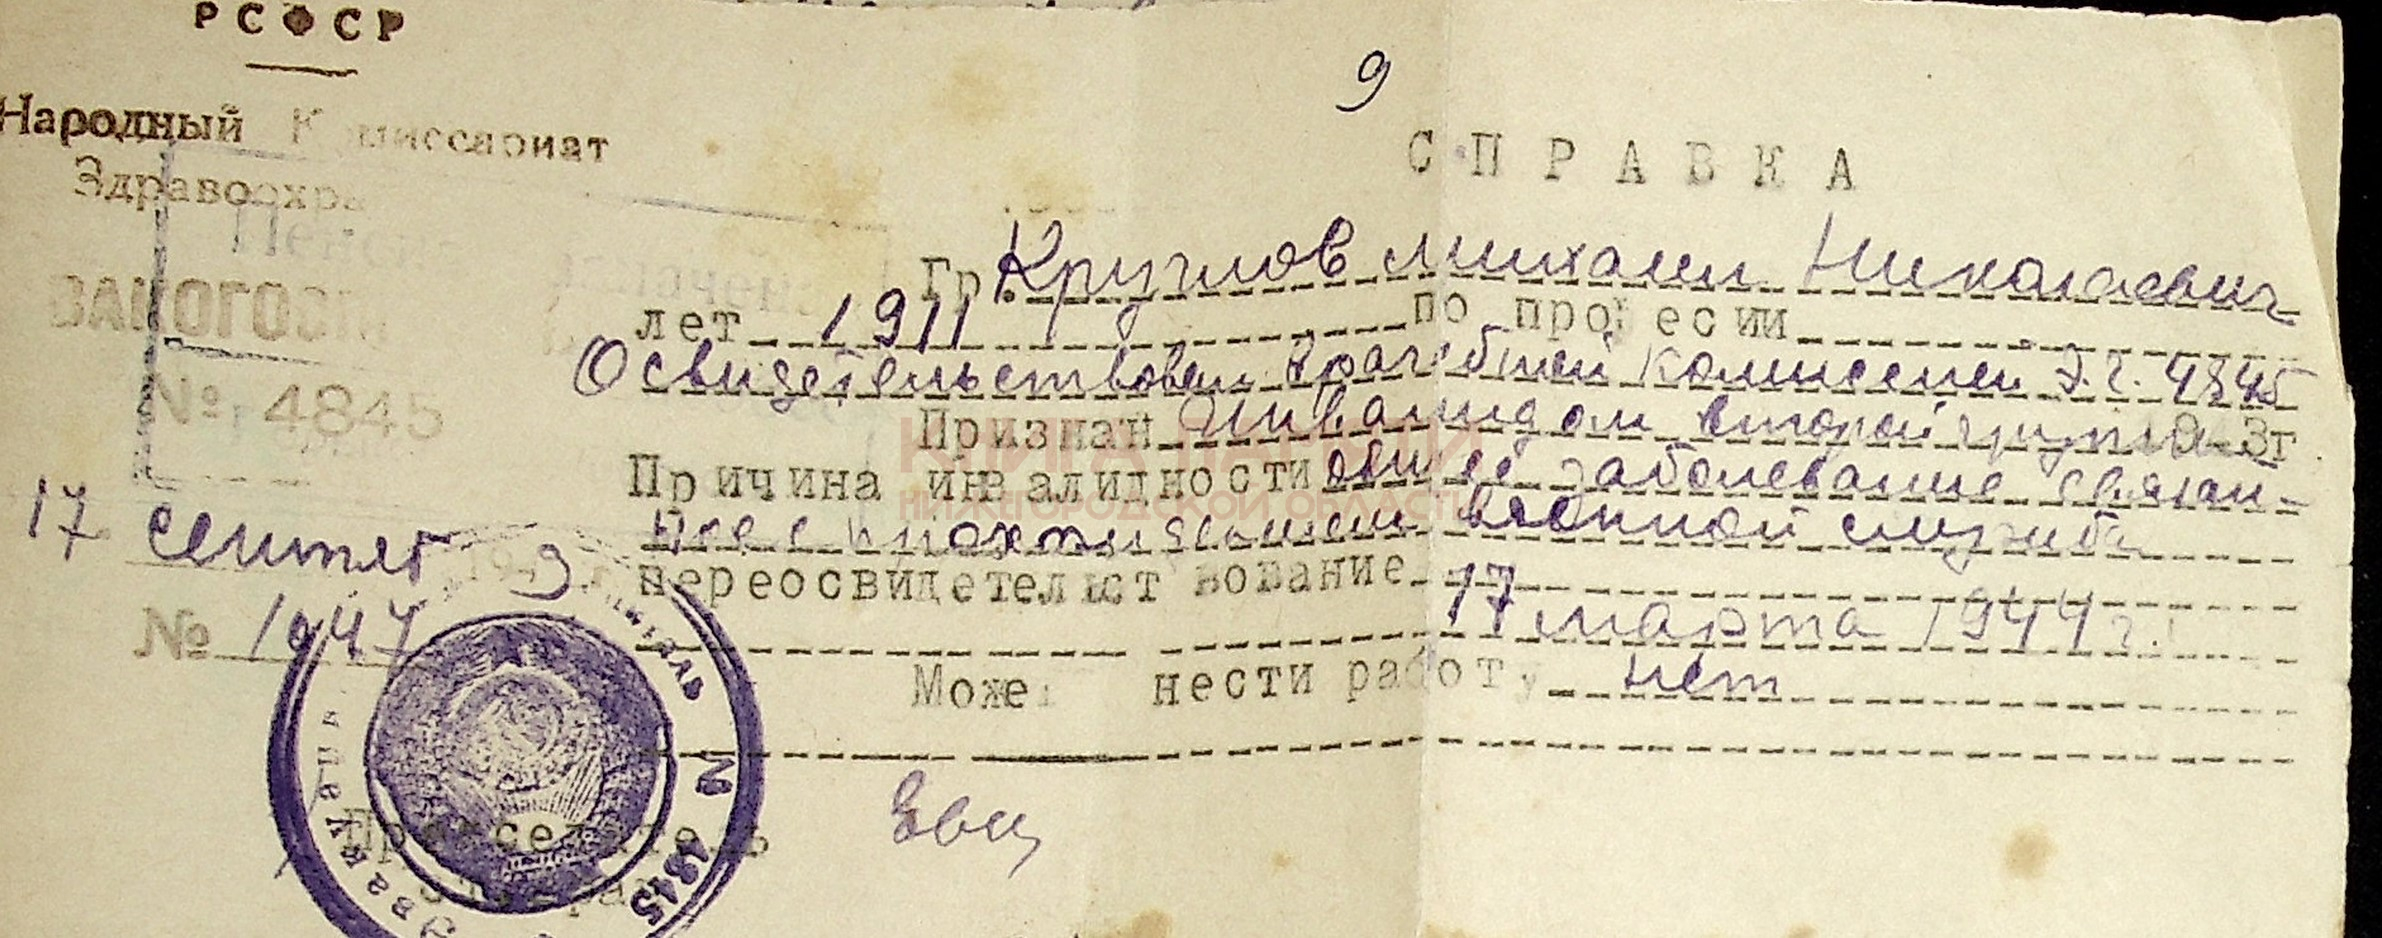 РСФСР
Народный Комиссариат
Здравоохра
ЗАКОГОС
№ 4845
17 сентяб 3
№ 1947
9
СПРАВКА
Гр. Круглов Михаил Николаевич
лет 1911 по професии
Освидетельствован врачебной комиссией Э.Г. 4845
Признан Инвалидом второй группы 3г
Причина инвалидности общее заболевание связан-
ное с прохождением военной службы
переосвидетельствование 17
марта 1944 г.
Може нести работу нет
Председатель
КНИГА ПАМЯТИ
НИЖЕГОРОДСКОЙ ОБЛАСТИ
№ 4845